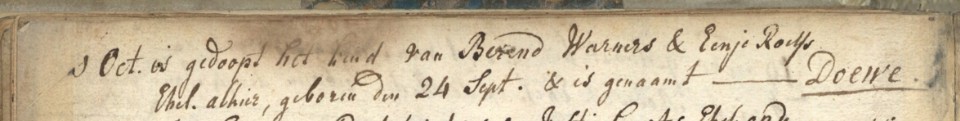 9 Oct. is gedoopt het kind van Berend Warners & Eenje Roelfs
Ehel. alhier, geboren den 24 Sept. & is genaamt —— Doewe.